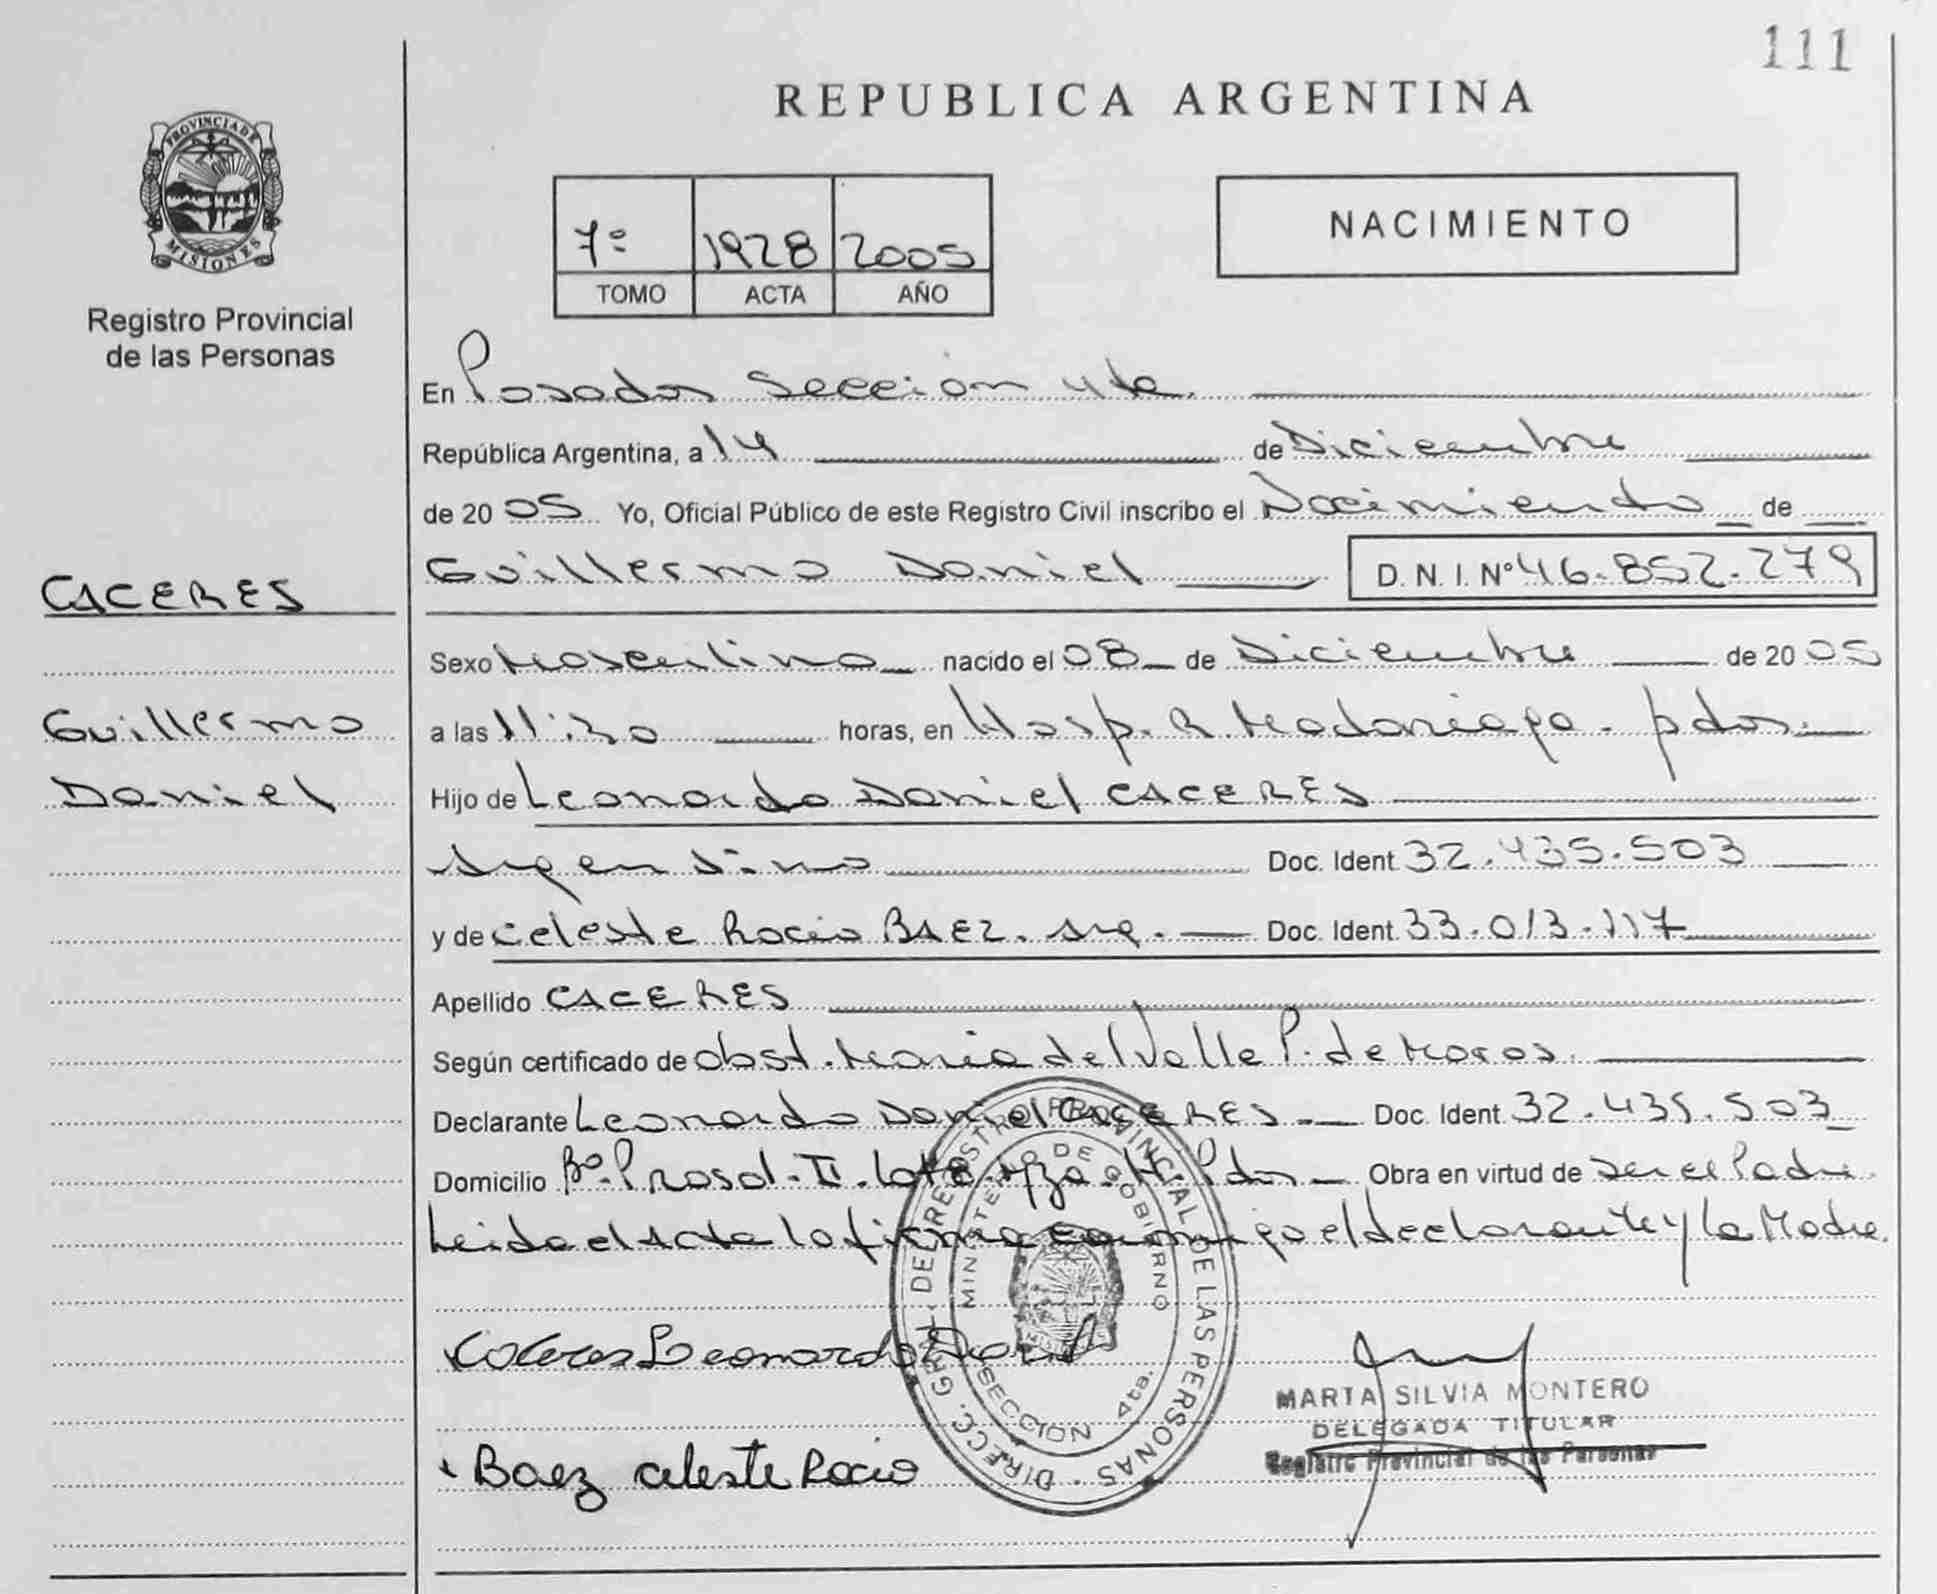 111
REPUBLICA ARGENTINA
PROVINCIA DE
MISIONES
Registro Provincial
de las Personas
7º 1928 2005
TOMO ACTA AÑO
NACIMIENTO
En Posadas Sección 4ta.
República Argentina, a 14 de Diciembre
de 2005 Yo, Oficial Público de este Registro Civil inscribo el Nacimiento de
CACERES
Guillermo Daniel D.N.I. Nº 46.852.279
Sexo Masculino nacido el 08 de Diciembre de 2005
Guillermo
a las horas, en Hosp. R. Madariaga - pdas.
Daniel
Hijo de Leonardo Daniel CACERES
Argentino Doc. Ident. 32.435.503
y de Celeste Rocio BAEZ. Arg. Doc. Ident. 33.013.117
Apellido CACERES
Según certificado de obst. Maria del Valle P. de
Declarante Leonardo Daniel CACERES Doc. Ident. 32.435.503
Domicilio Bº. Prosol. II. Lote Pdas Obra en virtud de ser el Padre.
Leida el Acta la firma conmigo el declarante y la Madre.
DIRECC. GRAL. DEL REGISTRO PROVINCIAL DE LAS PERSONAS
MINISTERIO DE GOBIERNO
SECCION 4ta.
Caceres Leonardo Daniel
MARTA SILVIA MONTERO
DELEGADA TITULAR
Registro Provincial de las Personas
Baez celeste Rocio